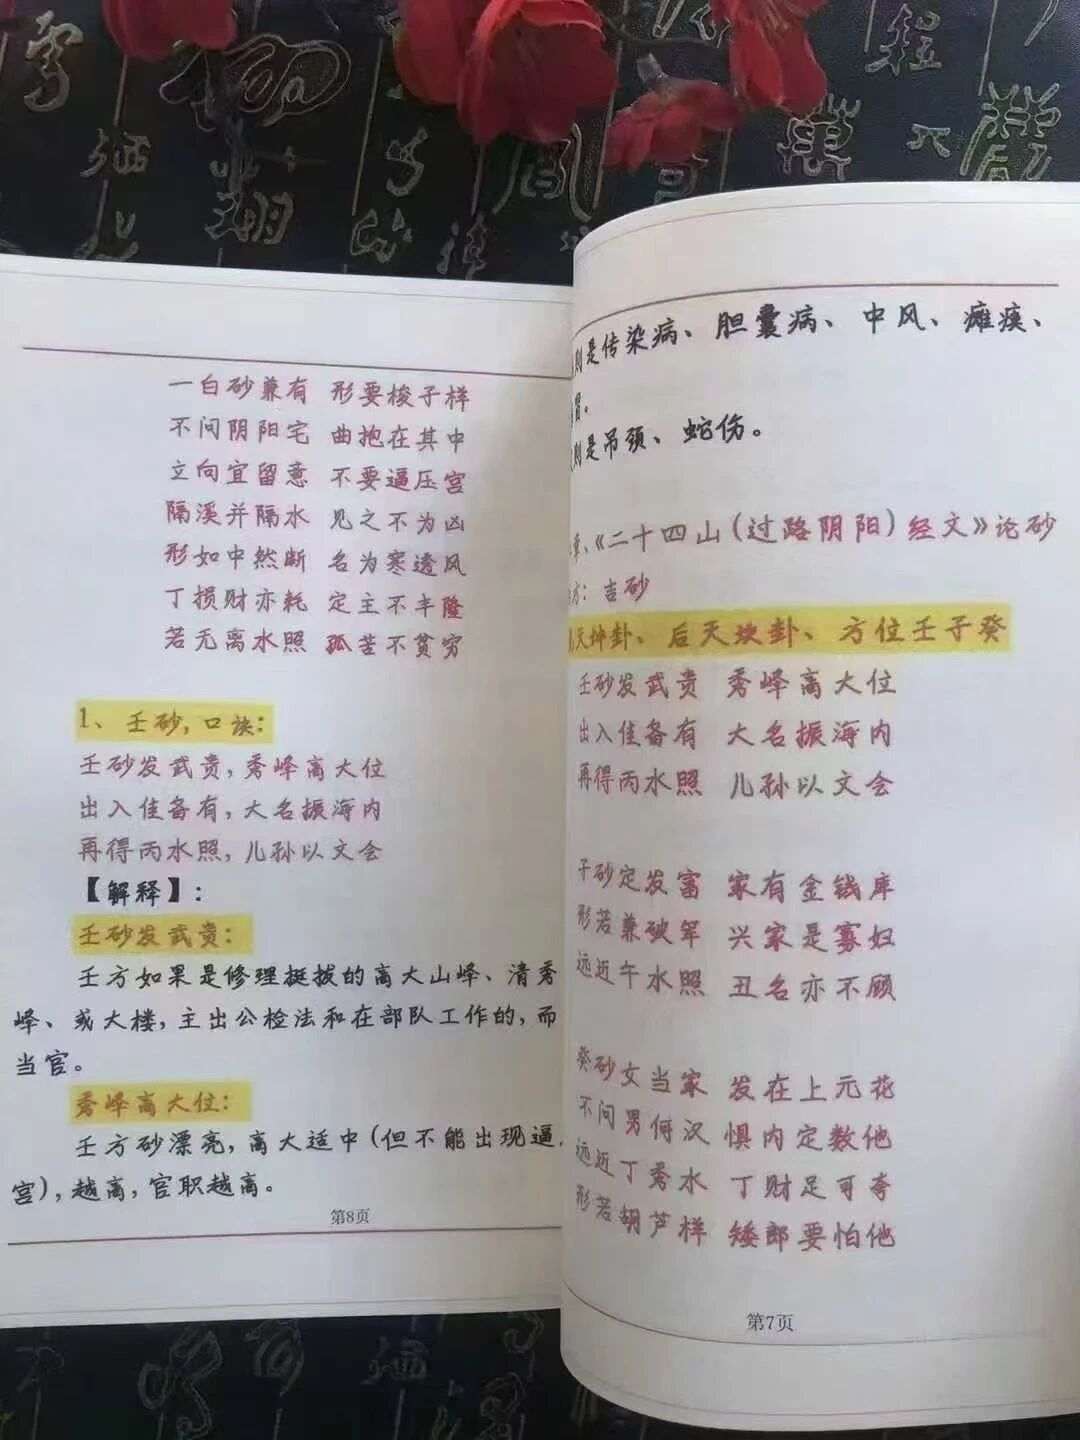 一白砂兼有 形要梭子样
不问阴阳宅 曲抱在其中
立向宜留意 不要逼压宫
隔溪并隔水 见之不为凶
形如中然断 名为寒透风
丁损财亦耗 定主不丰隆
若无离水照 孤苦不贫穷
1、壬砂,口诀:
壬砂发武贵,秀峰高大位
出入佳备有,大名振海内
再得丙水照,儿孙以文会
【解释】:
壬砂发武贵:
壬方如果是修理挺拔的高大山峰、清秀
峰、或大楼,主出公检法和在部队工作的,而
当官。
秀峰高大位:
壬方砂漂亮,高大适中(但不能出现逼
宫),越高,官职越高。
第8页
则是传染病、胆囊病、中风、瘫痪、
冒。
则是吊颈、蛇伤。
章、《二十四山(过路阴阳)经文》论砂
方:吉砂
天坤卦、后天坎卦、方位壬子癸
壬砂发武贵 秀峰高大位
出入佳备有 大名振海内
再得丙水照 儿孙以文会
子砂定发富 家有金钱库
形若兼破军 兴家是寡妇
远近午水照 丑名亦不顾
癸砂女当家 发在上元花
不问男何汉 惧内定数他
远近丁秀水 丁财足可夸
形若胡芦样 矮郎要怕他
第7页